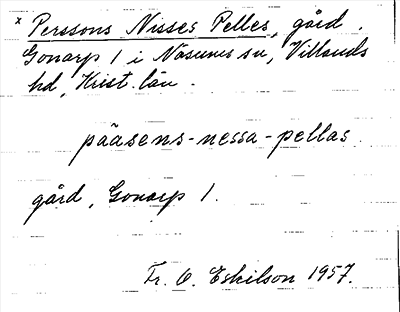 x Perssons Nisses Pelles, gård.
Gonarp 1 i Näsums sn, Villands
hd, Krist. län.
pääsens-nessa-pellas
gård, Gonarp 1.
Fr. O. Eskilson 1957.